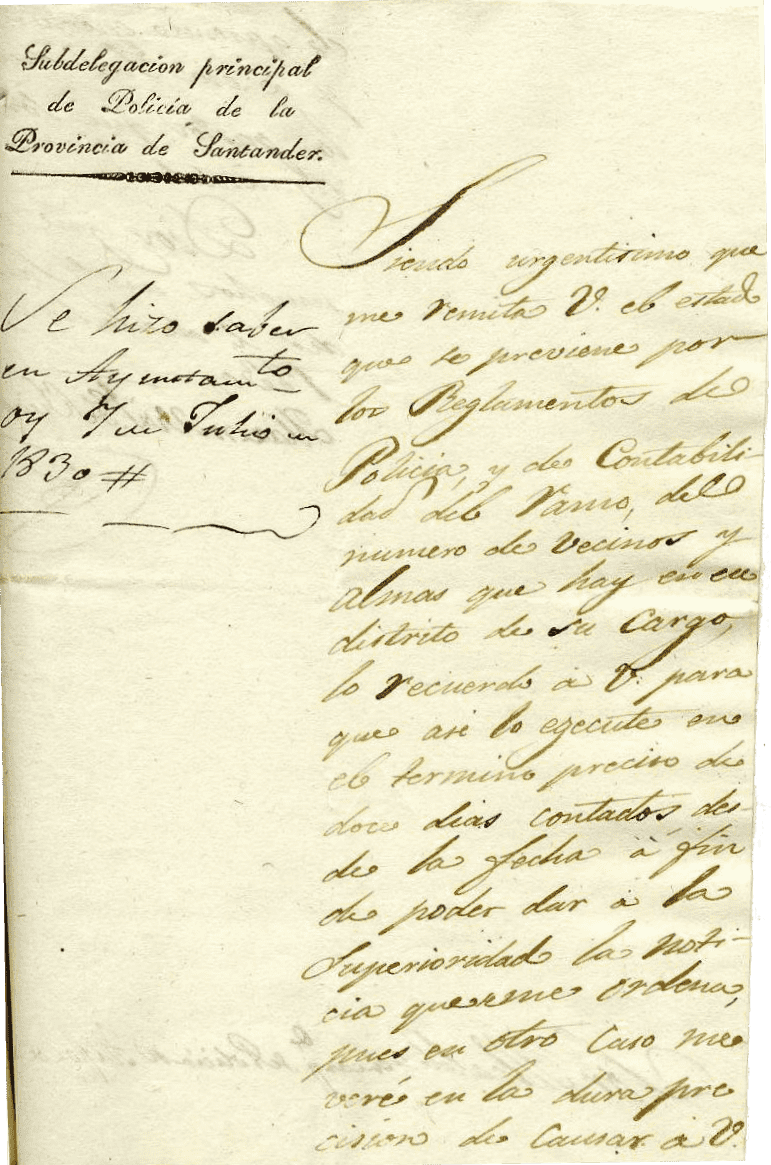 Subdelegacion principal
de Policía de la
Provincia de Santander.
Se hizo saber
en Ayuntamto
oy 7 de Julio de
1830 #
Siendo urgentisimo que
me remita V. el estado
que se previene por
los Reglamentos de
Policia, y de Contabili-
dad del Ramo, del
numero de vecinos y
almas que hay en el
distrito de su cargo,
lo recuerdo á V. para
que asi lo egecute en
el termino preciso de
doce dias contados des-
de la fecha á fin
de poder dar á la
Superioridad la noti-
cia que me ordena,
pues en otro caso me
veré en la dura pre
cision de causar á V.